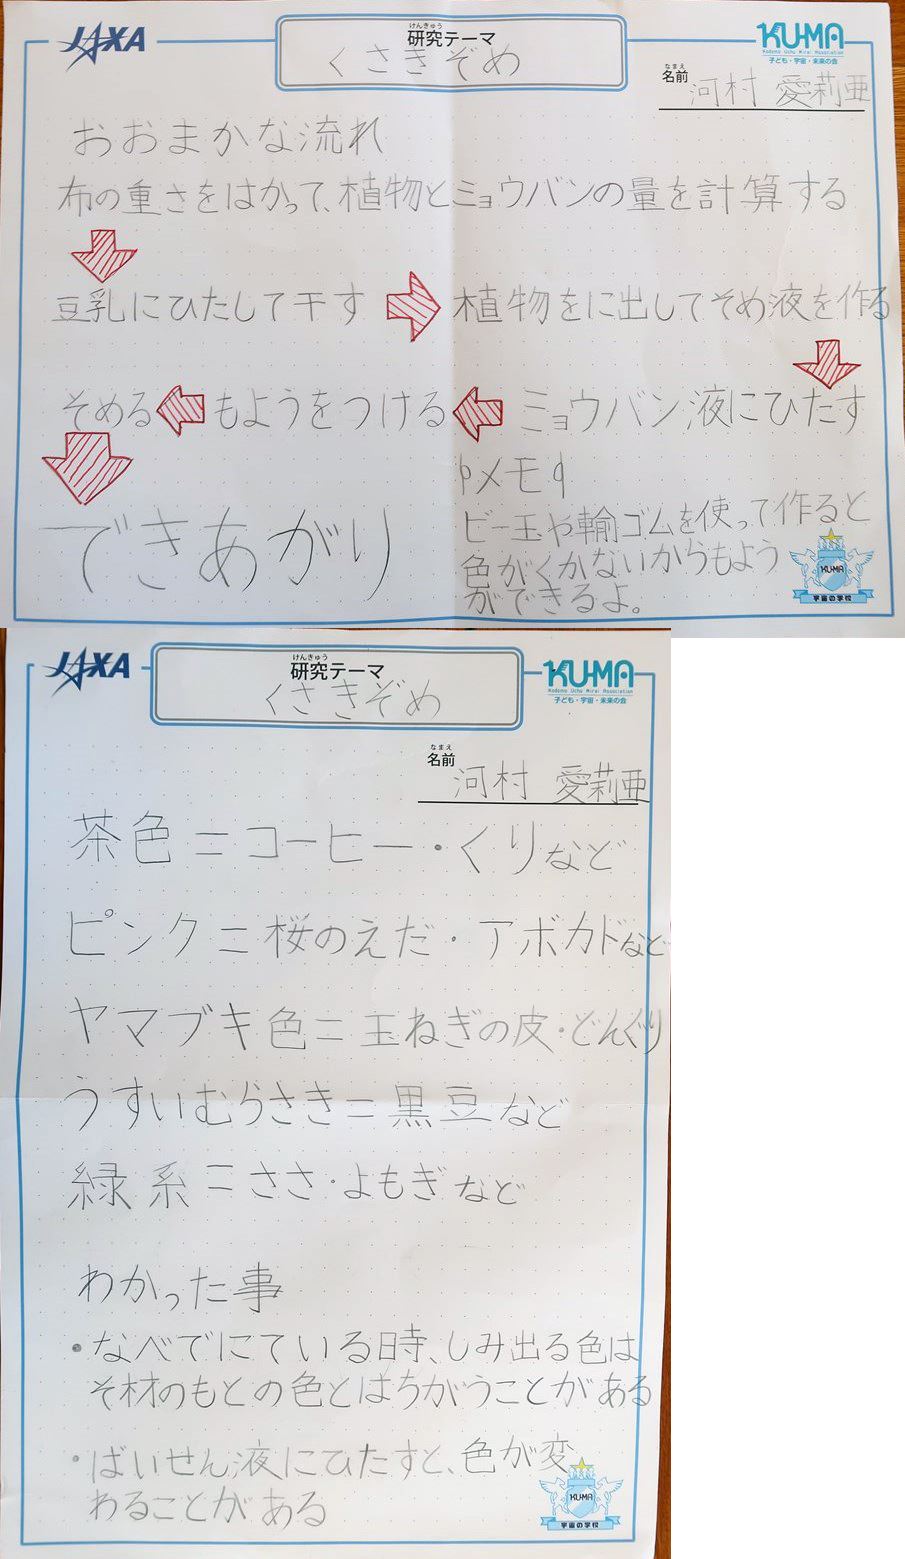 JAXA
けんきゅう
研究テーマ
くさきぞめ
KU-MA
Kodomo Uchu Mirai Association
子ども・宇宙・未来の会
なまえ
名前 河村 愛莉亜
おおまかな流れ
布の重さをはかって、植物とミョウバンの量を計算する
豆乳にひたして干す 植物をに出してそめ液を作る
そめる もようをつける ミョウバン液にひたす
メモ
ビー玉や輪ゴムを使って作ると
色がくかないからもよう
ができるよ。
できあがり
KU-MA
宇宙の学校
JAXA
けんきゅう
研究テーマ
くさきぞめ
KU-MA
Kodomo Uchu Mirai Association
子ども・宇宙・未来の会
なまえ
名前 河村 愛莉亜
茶色=コーヒー・くりなど
ピンク=桜のえだ・アボカドなど
ヤマブキ色=玉ねぎの皮・どんぐり
うすいむらさき=黒豆など
緑系=ささ・よもぎなど
わかった事
・なべでにている時、しみ出る色は
そ材のもとの色とはちがうことがある
・ばいせん液にひたすと、色が変
わることがある
KU-MA
宇宙の学校